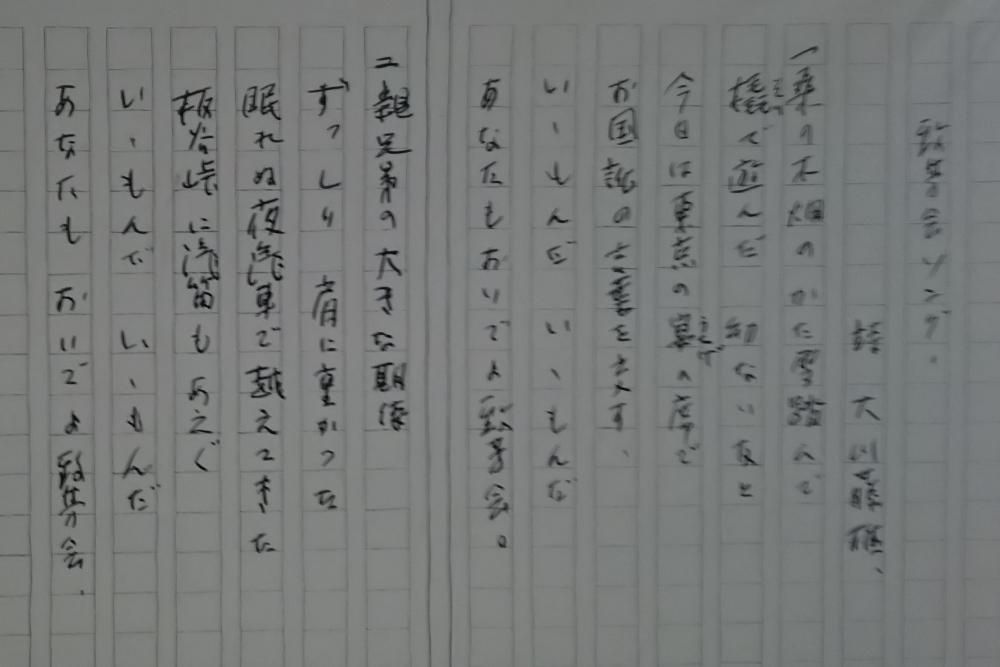 致芳会ソング。
詩 大川
一 桑の木畑のかた雪踏んで
橇で遊んだ 幼ない友と
今日は東京の宴の席で
お国訛の言葉を交す、
いゝもんだ いゝもんだ
あなたもおいでよ致芳会。
二 親兄弟の大きな期待
ずっしり 肩に重かった
眠れぬ夜汽車で越えてきた
板谷峠に汽笛も あえぐ
いゝもんだ いゝもんだ
あなたも おいでよ 致芳会.